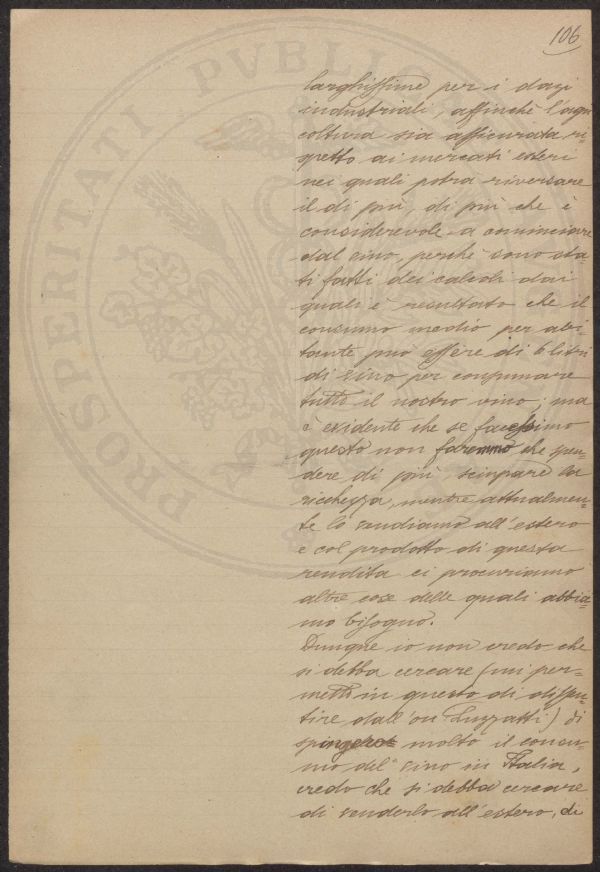 106
PROSPERITATI PVBLIC
larghissime per i dazi
industriali, affinchè l'agri
coltura sia assicurata ri=
spetto ai mercati esteri
nei quali potrà riversare
il di più, di più che è
considerevole a cominciare
dal vino, perchè sono sta=
ti fatti dei calcoli dai
quali è resultato che il
consumo medio per abi=
tante può essere di 6 litri
di vino per consumare
tutto il nostro vino; ma
è evidente che se facessimo
questo non faremmo che spen=
dere di più, sciupare la
ricchezza, mentre attualmen=
te lo vendiamo all'estero
e col prodotto di questa
vendita ci procuriamo
altre cose delle quali abbia=
mo bisogno.
Dunque io non credo che
si debba cercare (mi per=
metti in questo di dissen=
tire dall'on Luzzatti) di
spingere molto il consu=
mo del vino in Italia,
credo che si debba cercare
di venderlo all'estero, di